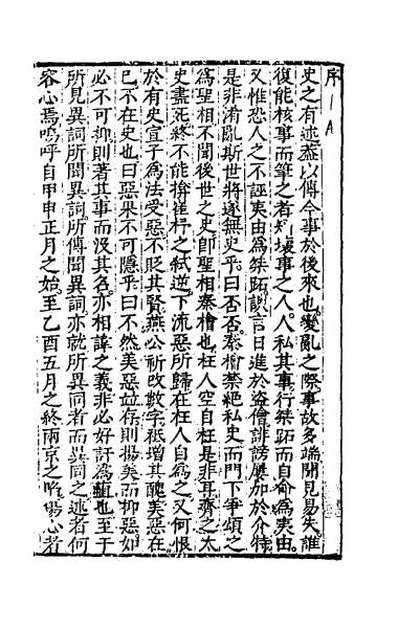 序
史之有述蓋以傳今事於後來也變亂之際事故多端聞見易失誰
復能核事而筆之者矧壞事之人人私其事行桀跖而自命為夷由
又惟恐人之不誣夷由為桀跖謬言日進於盜僧誹謗屢加於介特
是非淆亂斯世將遂無史乎曰否否秦檜禁絕私史而門下爭頌之
為聖相不聞後世之史卽聖相秦檜也枉人空自枉是非耳齊之太
史盡死終不能揜崔杼之弒逆下流惡所歸在枉人自為之又何恨
於有史宣子為法受惡不貶其賢燕公祈改數字祗增其醜美惡在
己不在史也曰惡果不可隱乎曰不然美惡並存則揚美而抑惡如
必不可抑則著其事而沒其名亦相諱之義非必好訐為直也至于
所見異詞所聞異詞所傳聞異詞亦就所異同者而異同之述者何
容心焉嗚呼自甲申正月之始至乙酉五月之終兩京之陷傷心者